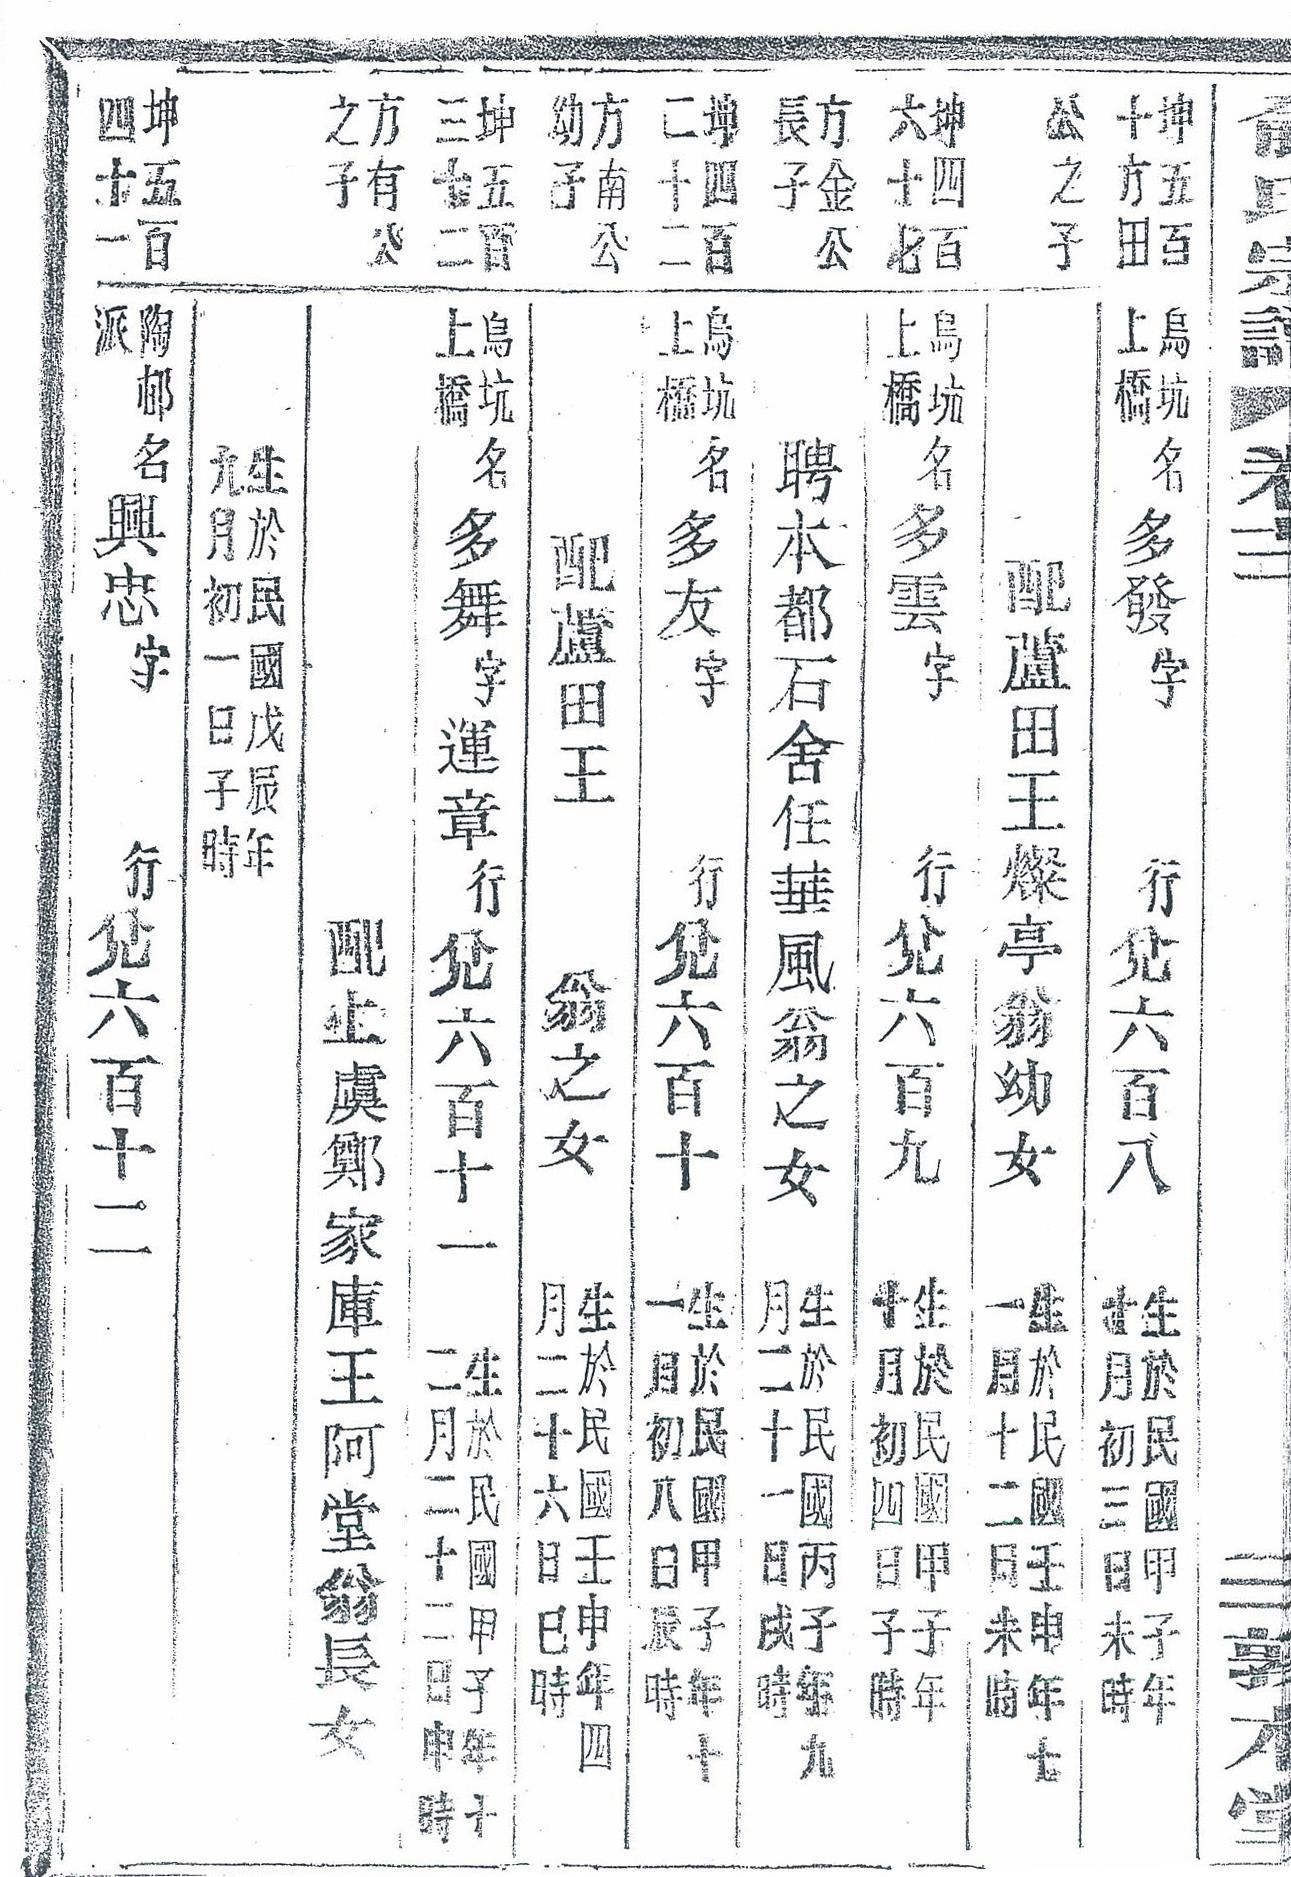 氏宗譜 卷
敦本堂
坤五百
十方田
公之子
坤四百
六十七
方金公
長子
坤四百
二十二
方南公
幼子
坤五百
三十二
方有公
之子
坤五百
四十一
烏坑
上橋
名多發字 行兊六百八
生於民國甲子年
十月初三日未時
配蘆田王燦亭翁幼女
生於民國壬申年七
月十二日未時
烏坑
上橋
名多雲字 行兊六百九
生於民國甲子年
十月初四日子時
聘本都石舍任華風翁之女
生於民國丙子年九
月二十一日戌時
烏坑
上橋
名多友字 行兊六百十
生於民國甲子年十
一月初八日辰時
配蘆田王 翁之女
生於民國壬申年四
月二十六日巳時
烏坑
上橋
名多舞字運章行兊六百十一
生於民國甲子年十
二月二十二日申時
配上虞鄭家庫王阿堂翁長女
生於民國戊辰年
九月初一日子時
陶邨
派
名興忠字 行兊六百十二